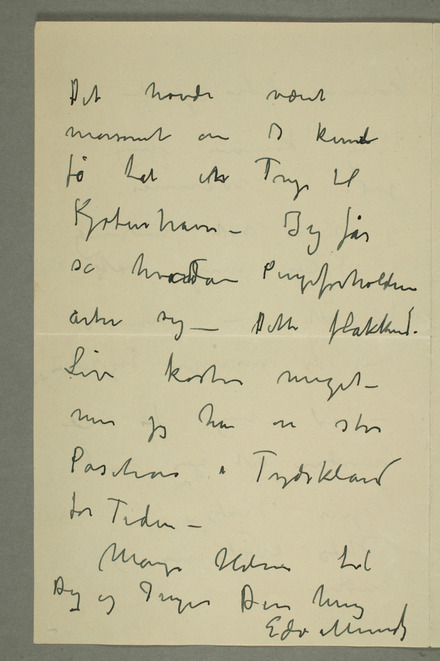 Det havde været
morsomt om I kunde
få tat en Tur til
Kjøbenhavn – Jeg får
se hvordan Pengeforholdene
arter sig – Dette flakkende
Liv koster meget –
men jeg har en stor
Position i Tydskland
for Tiden –
Mange Hilsener til
Dig og Inger Din heng
Edv Munch